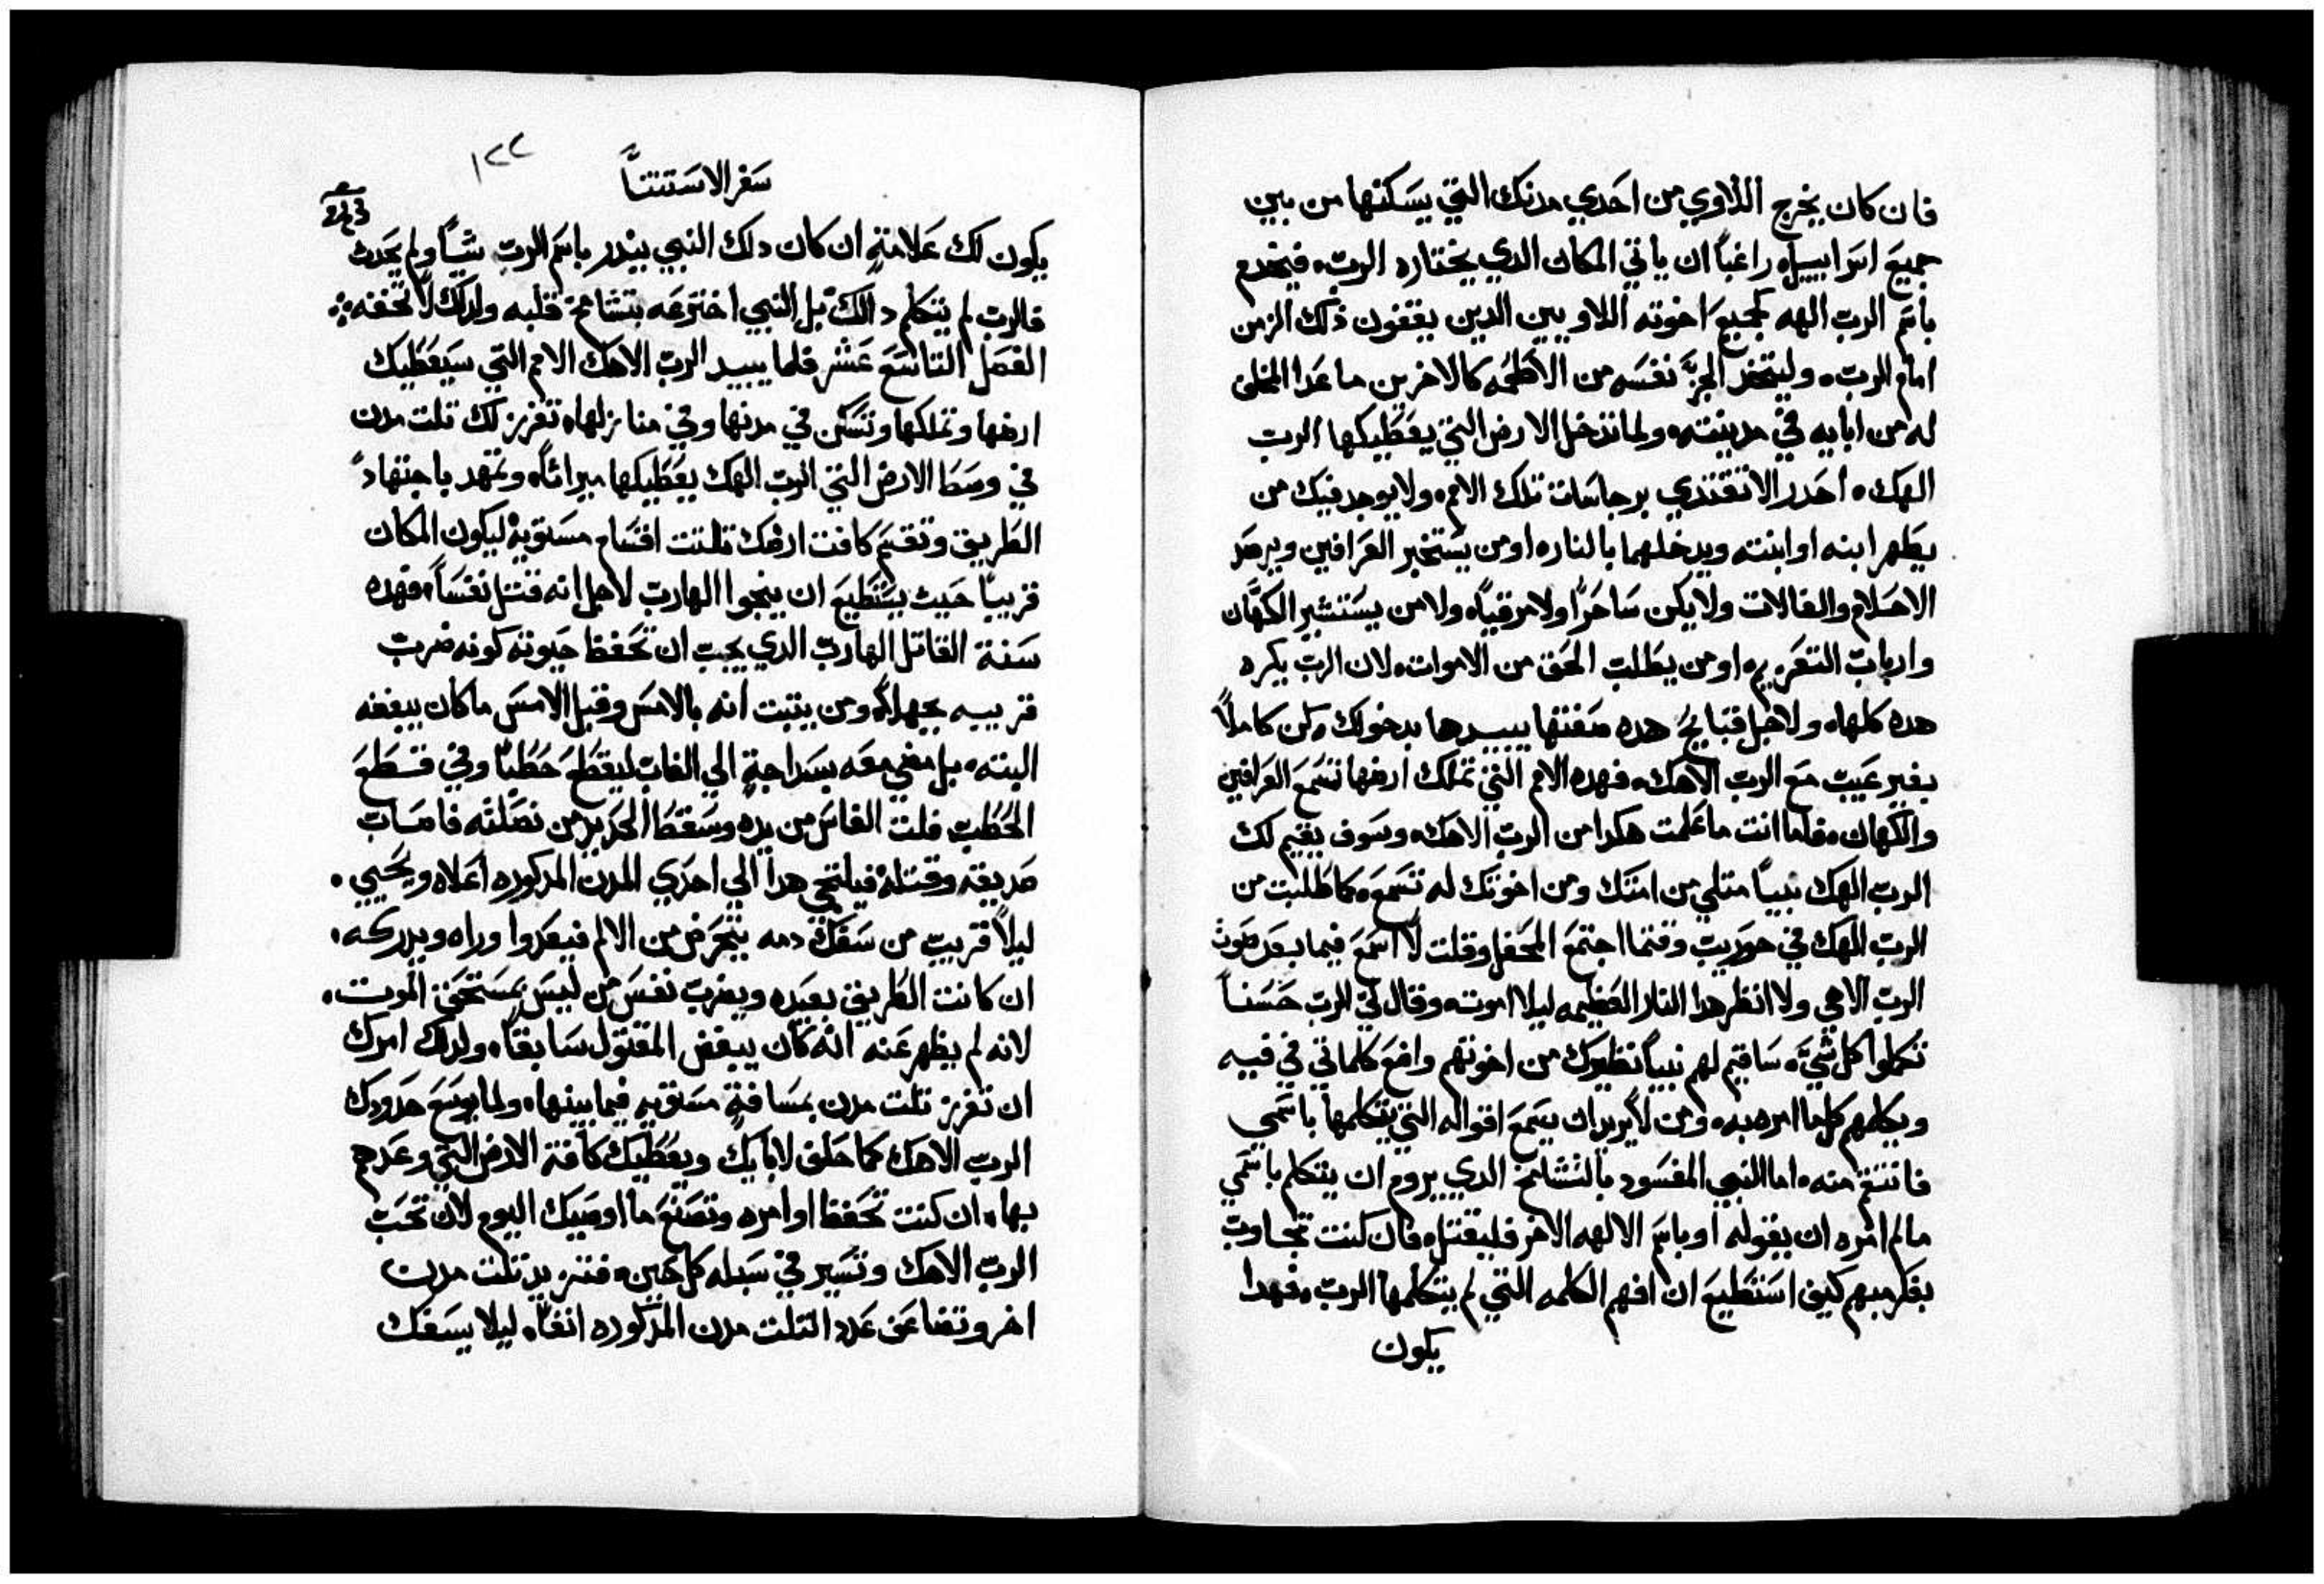 فان كان يخرج اللاوي من احدي مدنك التي يسكنها من بين
جميع اسراييل راغباً ان ياتي المكان الدي يختاره الرب، فيخدم
باسم الرب الهه كجميع اخوته اللاويين الدين يقفون ذلك الزمن
امام الرب، وليتخد الجزء نفسه من الاطعمه كالاخرين ما عدا المخلف
له من ابايه في مدينته، ولما تدخل الارض التي يعطيكها الرب
الهك، احدر الا تقتدي برجاسات تلك الامم، ولا يوجد فيك من
يطهر ابنه او ابنته ويدخلهما بالنار، او من يستخبر العرافين ويرصد
الاحلام والفالات ولا يكن ساحراً ولا مرقياً، ولا من يستشير الكهّان
وارباب التعزيم، او من يطلب الحق من الاموات، لان الرب يكره
هده كلها، ولاجل قبايح هده صفتها يبيدها بدخولك، كن كاملاً
بغير عيب مع الرب الاهك، فهده الامم التي تملك ارضها تسمع العرافين
والكهان، فاما انت ما علمت هكدا من الرب الاهك، وسوف يقيم لك
الرب الهك نبياً متلي من امتك ومن اخوتك له تسمع، كما طلبت من
الرب الهك في حوريب وقتما اجتمع المحفل وقلت لا اسمع فيما بعد صوت
الرب الاهي ولا انظر هدا النار العظيمه ليلا اموت، وقال لي الرب حسناً
تكملوا كل شيء، ساقيم لهم نبياً نظيرك من اخوتهم واضع كلماتي في فيه
ويكلمهم كلما امره به، ومن لا يريد ان يسمع اقواله التي يتكلمها باسمي
فانتقم منه، اما النبي المفسود بالتشامخ الدي يروم ان يتكلم باسمي
مالم امره ان يقوله او باسم الالهه الاخر فليقتل، فان كنت تجاوب
بفكرمبهم كيف استطيع ان افهم الكلمه التي لم يتكلمها الرب، فهدا
يكون
سفر الاستتنا
١٢٢
يكون لك علامة، ان كان دلك النبي ينذر باسم الرب شيّاً ولم يحدت
فالرب لم يتكلم دالك، بل النبي اخترعه بتشامخ قلبه ولدلك لا تخفه
الفصل التاسع عشر فلما يبيد الرب الاهك الامم التي سيعطيك
ارضها وتملكها وتسكن في مدنها وفي منازلها، تفرز لك تلت مدن
في وسط الارض التي الرب الهك يعطيكها ميراثاً، وتمهد باجتهادً
الطريق وتقسم كافت ارضك تلتت اقسام مستويةً ليكون المكان
قريباً حيث يستطيع ان ينجوا الهارب لاجل انه قتل نفساً، فهده
سنة القاتل الهارب الدي يجب ان تحفظ حيوته كونه ضرب
قريبه بجهلاً، ومن يتبت انه بالامس وقبل الامس ما كان يبغضه
البته، بل مضي معه بسداجة الي الغاب ليقطع حطباً وفي قطع
الحطب فلت الفاس من يده وسقط الحديد من نصلته فاصاب
صديقه وقتله فيلتجي هدا الي احدي المدن المدكوره اعلاه ويحيي
ليلا قريب من سفك دمه يتحرض من الالم فيعدوا وراه ويدركه،
ان كانت الطريق بعيده ويضرب نفس من ليس بمستحق الموت،
لانه لم يظهر عنه انه كان يبغض المقتول سابقاً، ولدلك امرك
ان تفرز تلت مدن بمسافة مستويه فيما بينها، ولما يوسع حدودك
الرب الاهك كما حلف لابايك ويعطيك كافة الارض التي وعدهم
بها، ان كنت تحفظ اوامره وتصنع ما اوصيك اليوم لان تحب
الرب الاهك وتسير في سبله كل حين، فتزيد تلت مدن
اخر وتضاعف عدد التلت مدن المدكوره انفاً، ليلا يسفك